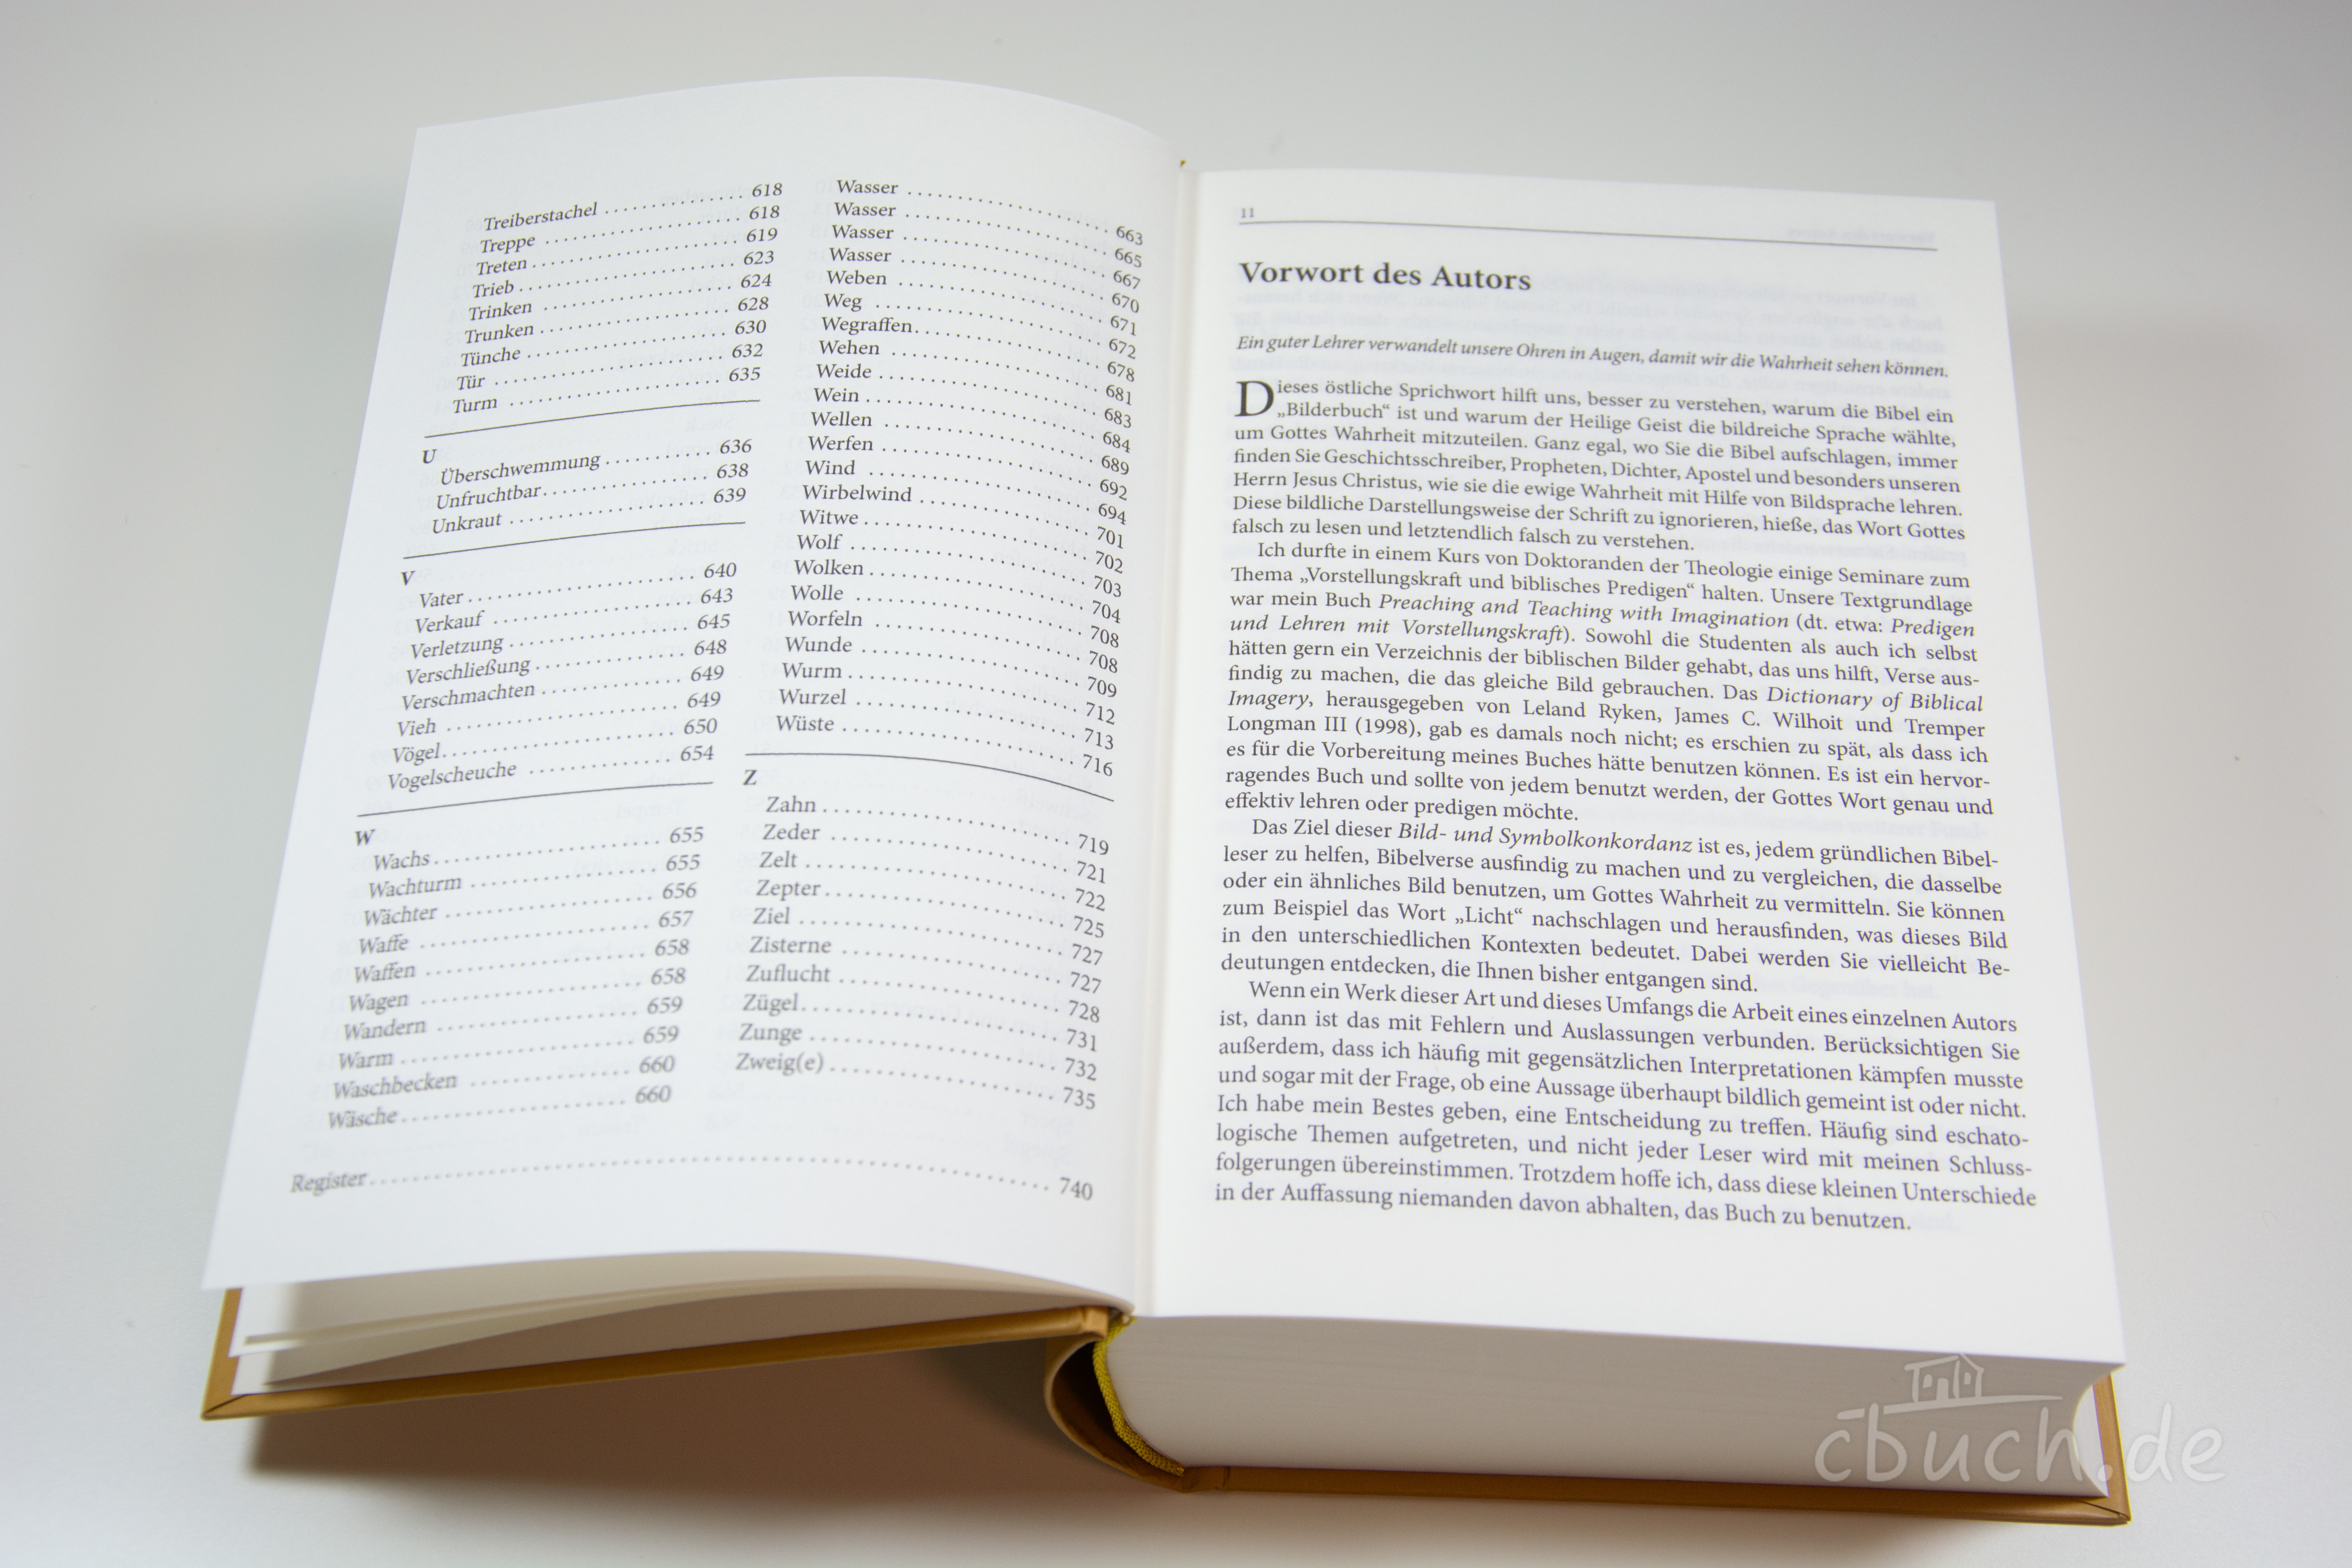 Treiberstachel . . . . . . . . . . . . . . . 618
Treppe . . . . . . . . . . . . . . . . . . . . . 618
Treten . . . . . . . . . . . . . . . . . . . . . . 619
Trieb . . . . . . . . . . . . . . . . . . . . . . . 623
Trinken . . . . . . . . . . . . . . . . . . . . 624
Trunken . . . . . . . . . . . . . . . . . . . . 628
Tünche . . . . . . . . . . . . . . . . . . . . . 630
Tür . . . . . . . . . . . . . . . . . . . . . . . . 632
Turm . . . . . . . . . . . . . . . . . . . . . . 635
U
Überschwemmung . . . . . . . . . . . 636
Unfruchtbar . . . . . . . . . . . . . . . . . 638
Unkraut . . . . . . . . . . . . . . . . . . . . 639
V
Vater . . . . . . . . . . . . . . . . . . . . . . 640
Verkauf . . . . . . . . . . . . . . . . . . . . 643
Verletzung . . . . . . . . . . . . . . . . . . 645
Verschließung . . . . . . . . . . . . . . . 648
Verschmachten . . . . . . . . . . . . . . 649
Vieh . . . . . . . . . . . . . . . . . . . . . . . 649
Vögel . . . . . . . . . . . . . . . . . . . . . . 650
Vogelscheuche . . . . . . . . . . . . . . 654
W
Wachs . . . . . . . . . . . . . . . . . . . . . 655
Wachturm . . . . . . . . . . . . . . . . . . 655
Wächter . . . . . . . . . . . . . . . . . . . . 656
Waffe . . . . . . . . . . . . . . . . . . . . . . 657
Waffen . . . . . . . . . . . . . . . . . . . . . 658
Wagen . . . . . . . . . . . . . . . . . . . . . 658
Wandern . . . . . . . . . . . . . . . . . . . 659
Warm . . . . . . . . . . . . . . . . . . . . . 659
Waschbecken . . . . . . . . . . . . . . . 660
Wäsche . . . . . . . . . . . . . . . . . . . . 660
Wasser . . . . . . . . . . . . . . . . . . . . . 663
Wasser . . . . . . . . . . . . . . . . . . . . . 665
Wasser . . . . . . . . . . . . . . . . . . . . . 667
Wasser . . . . . . . . . . . . . . . . . . . . . 670
Weben . . . . . . . . . . . . . . . . . . . . . 671
Weg . . . . . . . . . . . . . . . . . . . . . . . 672
Wegraffen . . . . . . . . . . . . . . . . . . 678
Wehen . . . . . . . . . . . . . . . . . . . . . 681
Weide . . . . . . . . . . . . . . . . . . . . . . 683
Wein . . . . . . . . . . . . . . . . . . . . . . . 684
Wellen . . . . . . . . . . . . . . . . . . . . . 689
Werfen . . . . . . . . . . . . . . . . . . . . . 692
Wind . . . . . . . . . . . . . . . . . . . . . . 694
Wirbelwind . . . . . . . . . . . . . . . . . 701
Witwe . . . . . . . . . . . . . . . . . . . . . . 702
Wolf . . . . . . . . . . . . . . . . . . . . . . . 703
Wolken . . . . . . . . . . . . . . . . . . . . . 704
Wolle . . . . . . . . . . . . . . . . . . . . . . 708
Worfeln . . . . . . . . . . . . . . . . . . . . 708
Wunde . . . . . . . . . . . . . . . . . . . . . 709
Wurm . . . . . . . . . . . . . . . . . . . . . . 712
Wurzel . . . . . . . . . . . . . . . . . . . . . 713
Wüste . . . . . . . . . . . . . . . . . . . . . . 716
Z
Zahn . . . . . . . . . . . . . . . . . . . . . . . 719
Zeder . . . . . . . . . . . . . . . . . . . . . . 721
Zelt . . . . . . . . . . . . . . . . . . . . . . . . 722
Zepter . . . . . . . . . . . . . . . . . . . . . . 725
Ziel . . . . . . . . . . . . . . . . . . . . . . . . 727
Zisterne . . . . . . . . . . . . . . . . . . . . 727
Zuflucht . . . . . . . . . . . . . . . . . . . . 728
Zügel . . . . . . . . . . . . . . . . . . . . . . 731
Zunge . . . . . . . . . . . . . . . . . . . . . . 732
Zweig(e) . . . . . . . . . . . . . . . . . . . . 735
Register . . . . . . . . . . . . . . . . . . . . . . . . . . . . . . . . . . . . . . . . . . . . 740
11
Vorwort des Autors
Ein guter Lehrer verwandelt unsere Ohren in Augen, damit wir die Wahrheit sehen können.
Dieses östliche Sprichwort hilft uns, besser zu verstehen, warum die Bibel ein
„Bilderbuch“ ist und warum der Heilige Geist die bildreiche Sprache wählte,
um Gottes Wahrheit mitzuteilen. Ganz egal, wo Sie die Bibel aufschlagen, immer
finden Sie Geschichtsschreiber, Propheten, Dichter, Apostel und besonders unseren
Herrn Jesus Christus, wie sie die ewige Wahrheit mit Hilfe von Bildsprache lehren.
Diese bildliche Darstellungsweise der Schrift zu ignorieren, hieße, das Wort Gottes
falsch zu lesen und letztendlich falsch zu verstehen.
Ich durfte in einem Kurs von Doktoranden der Theologie einige Seminare zum
Thema „Vorstellungskraft und biblisches Predigen“ halten. Unsere Textgrundlage
war mein Buch Preaching and Teaching with Imagination (dt. etwa: Predigen
und Lehren mit Vorstellungskraft). Sowohl die Studenten als auch ich selbst
hätten gern ein Verzeichnis der biblischen Bilder gehabt, das uns hilft, Verse aus-
findig zu machen, die das gleiche Bild gebrauchen. Das Dictionary of Biblical
Imagery, herausgegeben von Leland Ryken, James C. Wilhoit und Tremper
Longman III (1998), gab es damals noch nicht; es erschien zu spät, als dass ich
es für die Vorbereitung meines Buches hätte benutzen können. Es ist ein hervor-
ragendes Buch und sollte von jedem benutzt werden, der Gottes Wort genau und
effektiv lehren oder predigen möchte.
Das Ziel dieser Bild- und Symbolkonkordanz ist es, jedem gründlichen Bibel-
leser zu helfen, Bibelverse ausfindig zu machen und zu vergleichen, die dasselbe
oder ein ähnliches Bild benutzen, um Gottes Wahrheit zu vermitteln. Sie können
zum Beispiel das Wort „Licht“ nachschlagen und herausfinden, was dieses Bild
in den unterschiedlichen Kontexten bedeutet. Dabei werden Sie vielleicht Be-
deutungen entdecken, die Ihnen bisher entgangen sind.
Wenn ein Werk dieser Art und dieses Umfangs die Arbeit eines einzelnen Autors
ist, dann ist das mit Fehlern und Auslassungen verbunden. Berücksichtigen Sie
außerdem, dass ich häufig mit gegensätzlichen Interpretationen kämpfen musste
und sogar mit der Frage, ob eine Aussage überhaupt bildlich gemeint ist oder nicht.
Ich habe mein Bestes geben, eine Entscheidung zu treffen. Häufig sind eschato-
logische Themen aufgetreten, und nicht jeder Leser wird mit meinen Schluss-
folgerungen übereinstimmen. Trotzdem hoffe ich, dass diese kleinen Unterschiede
in der Auffassung niemanden davon abhalten, das Buch zu benutzen.
cbuch.de